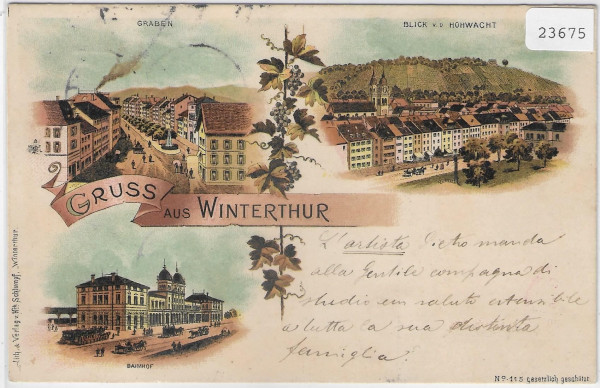 GRABEN
BLICK v. D. HOHWACHT
23675
GRUSS
AUS WINTERTHUR
L'artista Pietro manda
alla Gentile compagna di
studio un saluto estensibile
a tutta la sua distinta
famiglia.
Lith. & Verlag v. Hch. Schlumpf, Winterthur.
BAHNHOF
No. 115 Gesetzlich geschützt